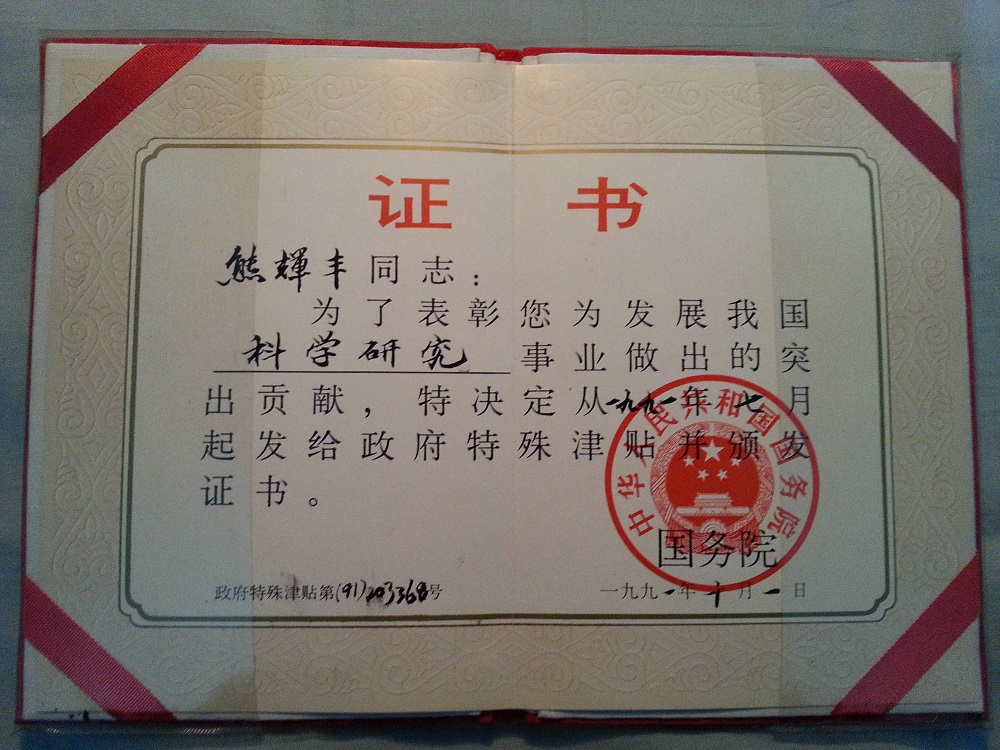 证书
熊輝丰同志：
为了表彰您为发展我国
科学研究事业做出的突
出贡献，特决定从一九九一年七月
起发给政府特殊津贴并颁发
证书。
中华人民共和国国务院
国务院
政府特殊津贴第(91)203368号
一九九一年十月一日